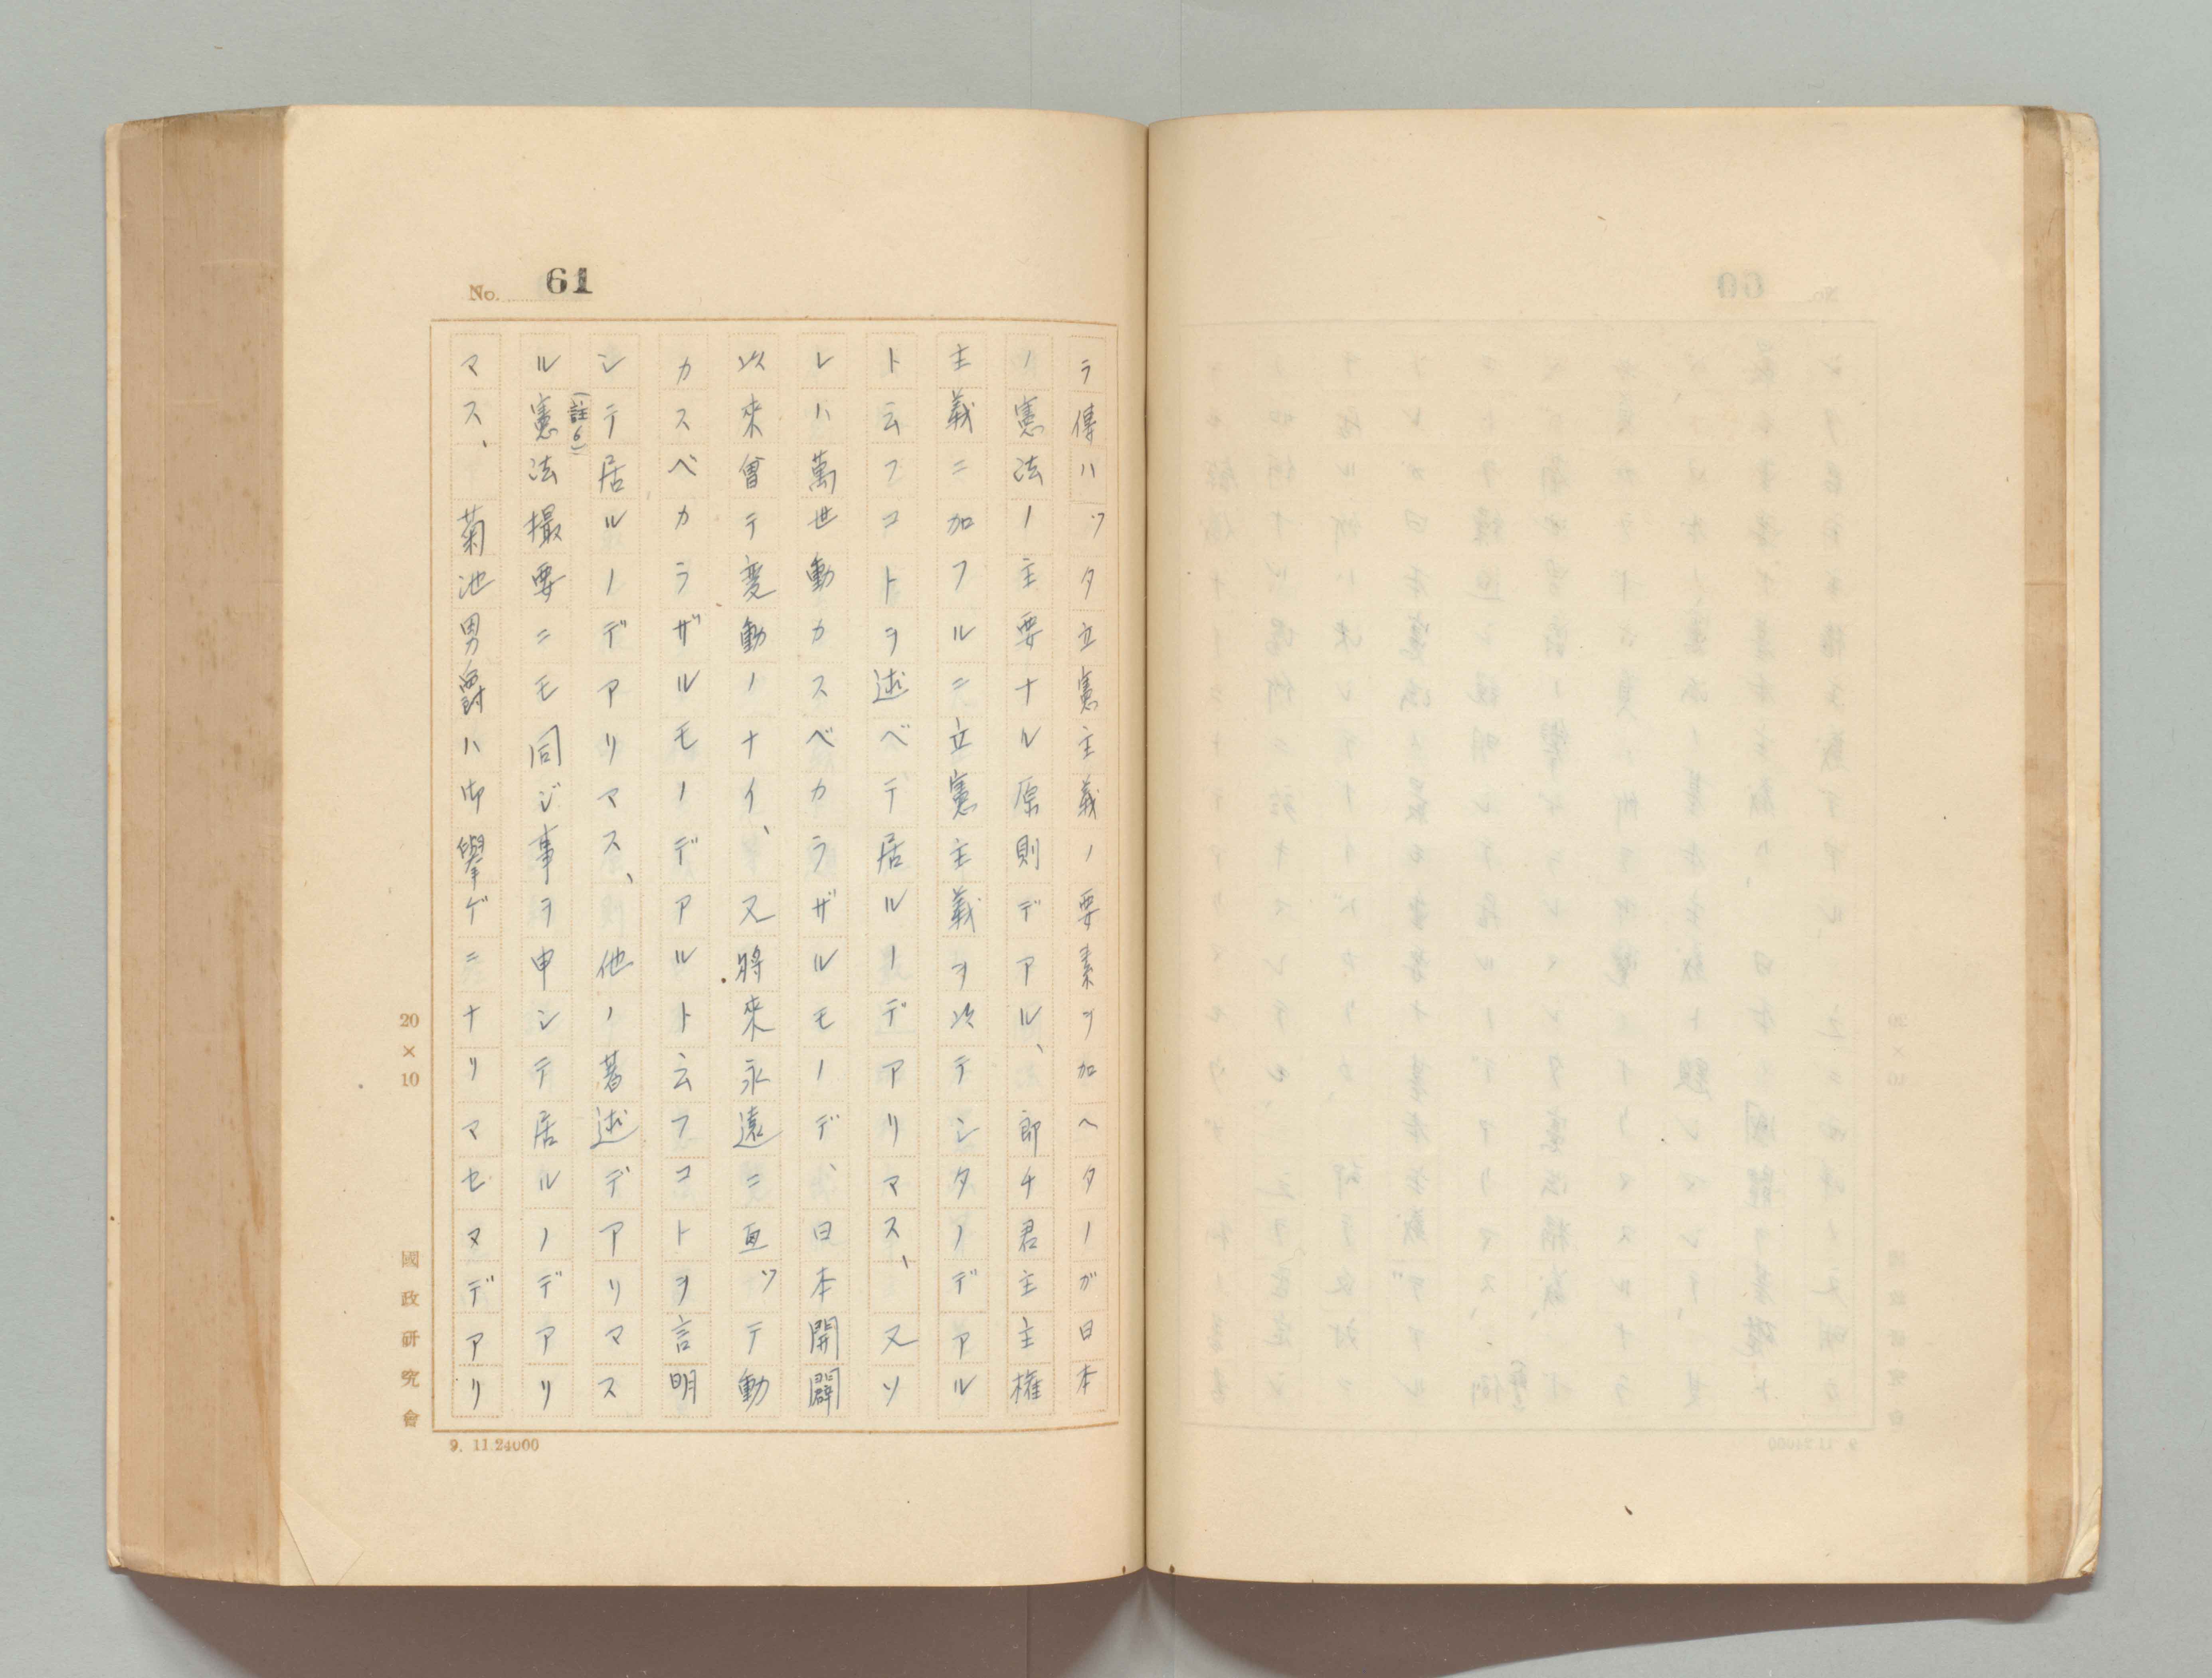 No. 61
ラ傳ハツタ立憲主義ノ要素ヲ加ヘタノガ日本
ノ憲法ノ主要ナル原則デアル、即チ君主主権
主義ニ加フルニ立憲主義ヲ以テシタノデアル
ト云フコトヲ述ベテ居ルノデアリマス、又ソ
レハ萬世動カスベカラザルモノデ、日本開闢
以來曾テ変動ノナイ、又將來永遠ニ亘ツテ動
カスベカラザルモノデアルト云フコトヲ言明
シテ居ルノデアリマス、他ノ著述デアリマス
(註6)
ル憲法撮要ニモ同ジ事ヲ申シテ居ルノデアリ
マス、菊池男爵ハ御擧ゲニナリマセヌデアリ
20×10
國政研究會
9. 11.24000